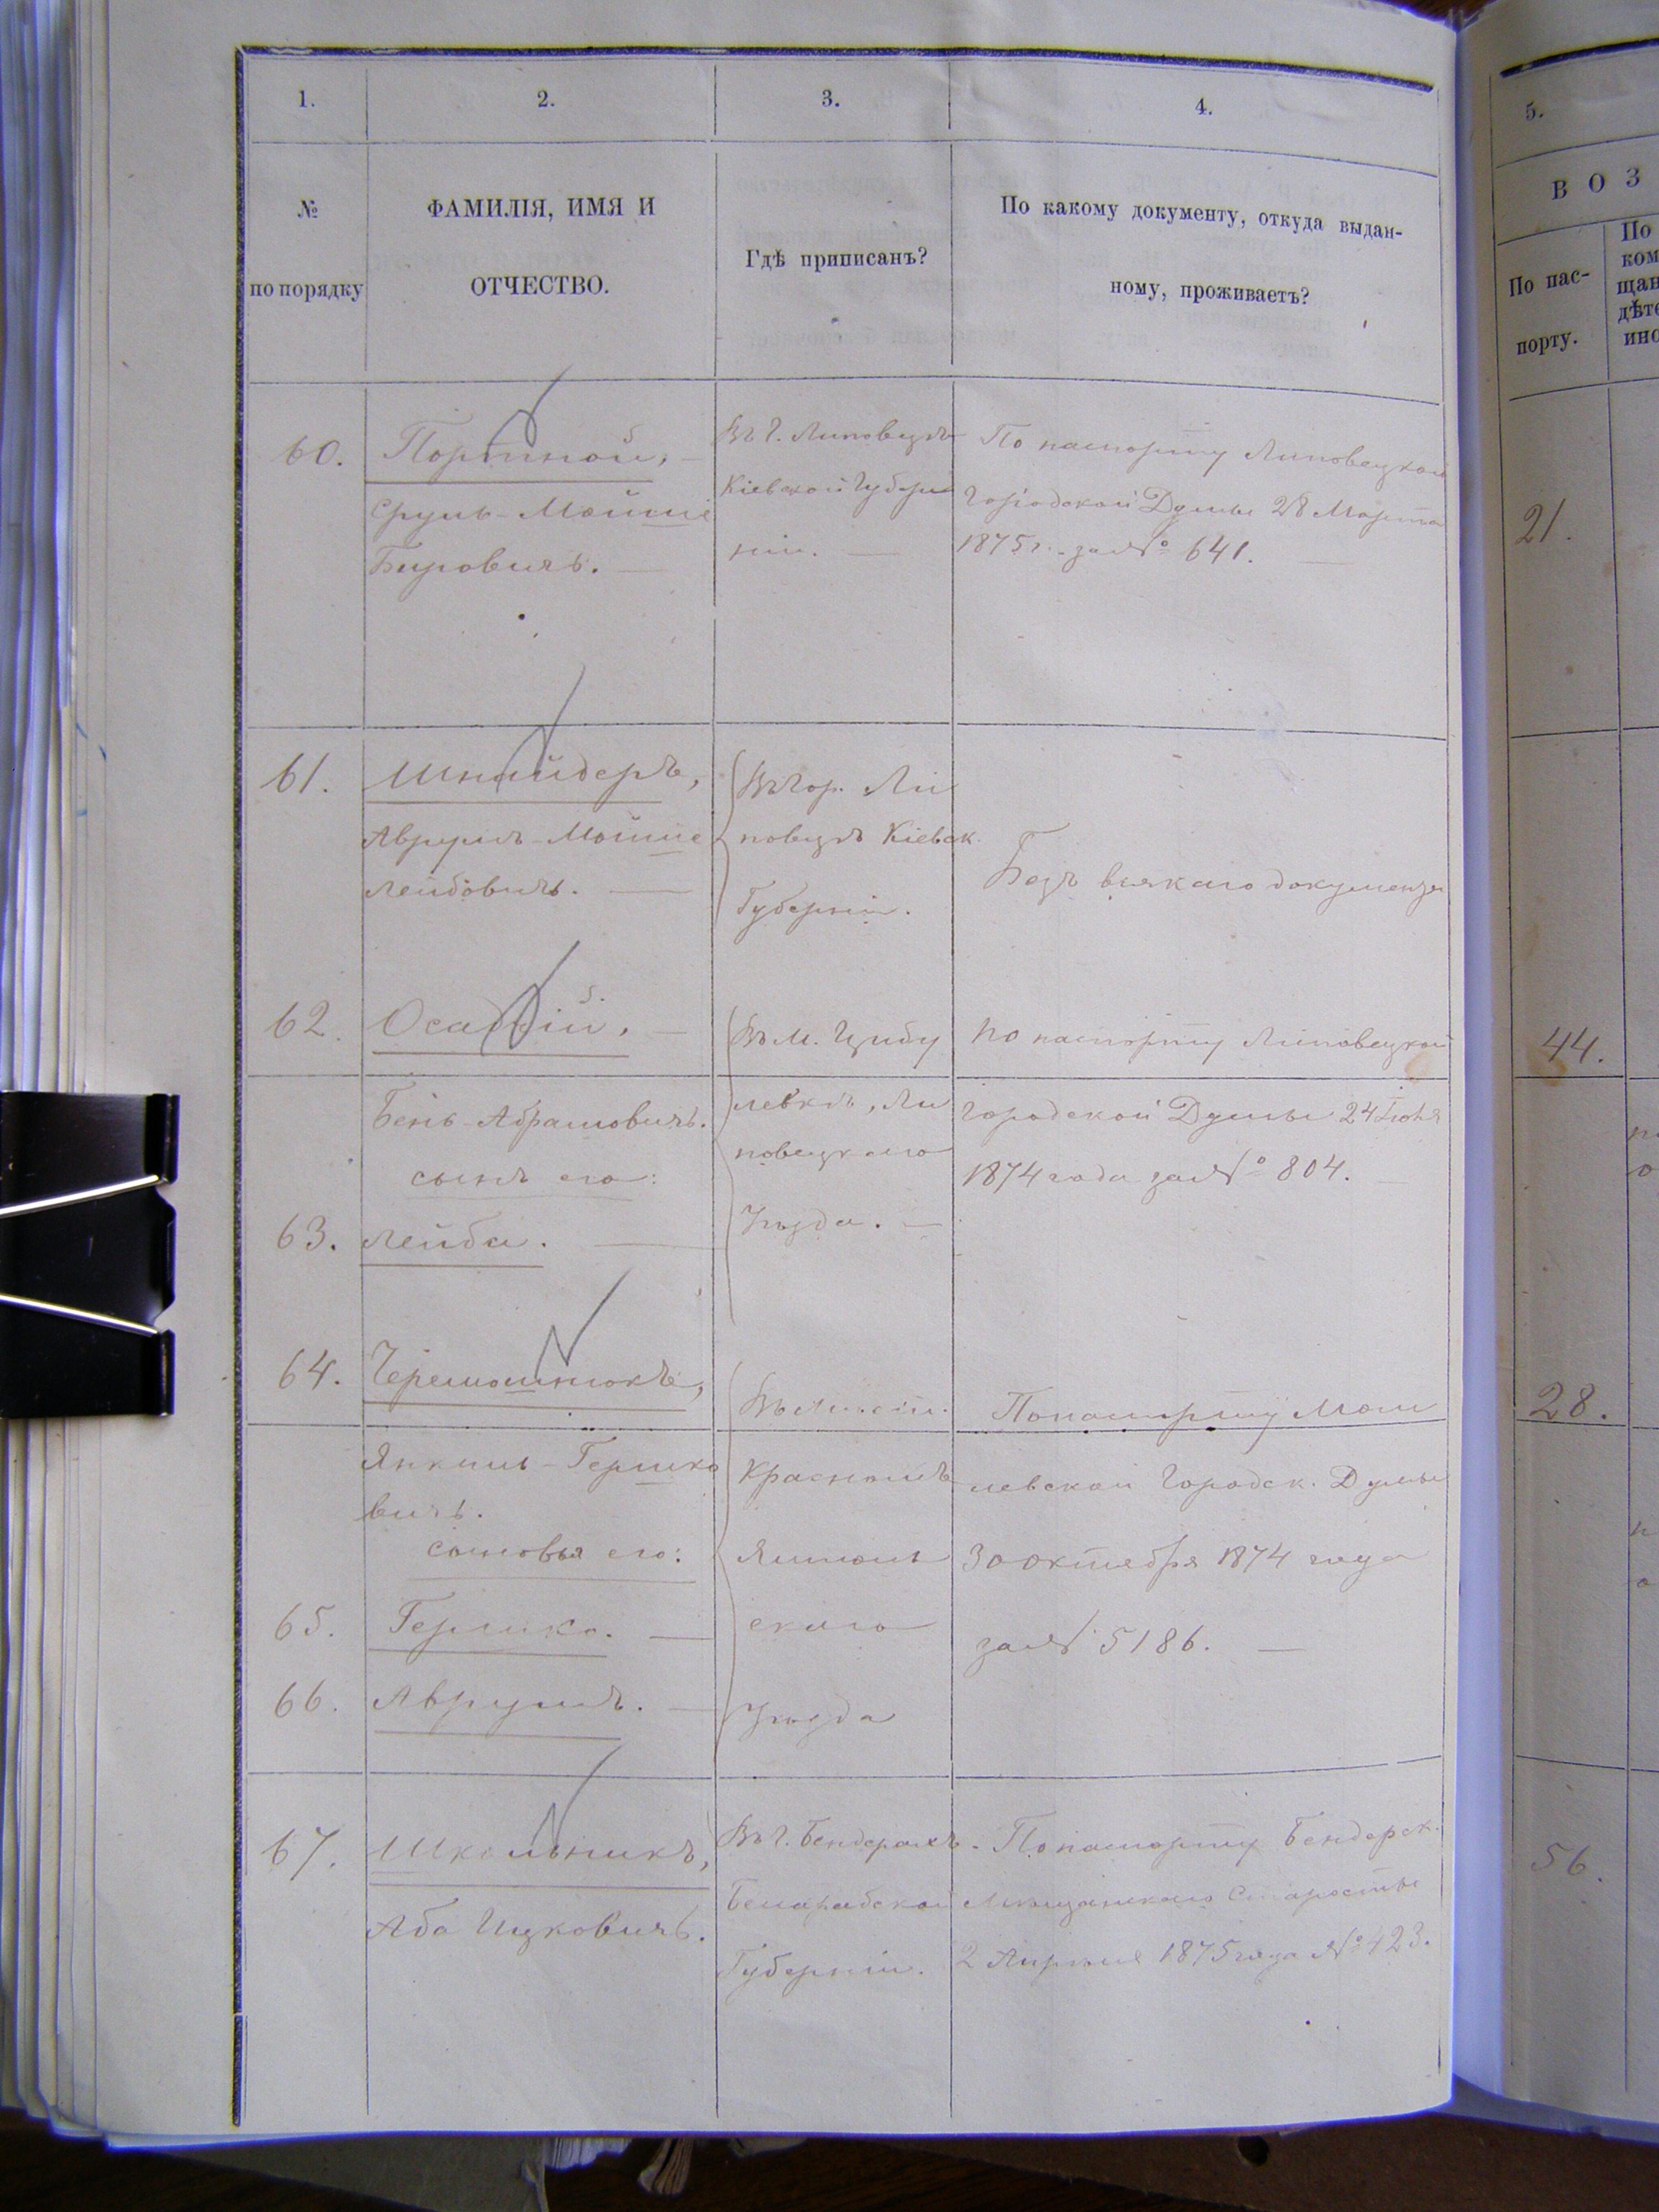 1.
2.
3.
4.
5.
№
по порядку
ФАМИЛІЯ, ИМЯ И
ОТЧЕСТВО.
Гдѣ приписанъ?
По какому документу, откуда выдан-
ному, проживаетъ?
В О З
По пас-
порту.
По
ком
щан
дѣте
ино
60.
Портной,
Сруль-Мойше
Беровичъ.
Въ г. Липовцѣ
Кіевской Губер
ніи.
По паспорту Липовецкой
Городской Думы 28 Марта
1875 г. за № 641.
21.
61.
Шнайдеръ,
Аврумъ-Мойше
Лейбовичъ.
Въ гор. Ли
повцѣ Кіевск.
Губерніи.
Безъ всякаго документа
62.
Осадчій,
Бень-Абрамовичъ.
сынъ его:
63. Лейба.
Въ м. Цибу
левкѣ, Ли
повецкаго
Уѣзда.
По паспорту Липовецкой
Городской Думы 24 Іюня
1874 года за № 804.
44.
64.
Черемошнюкъ,
Янкель-Гершко
вичъ.
сыновья его:
65. Гершко.
66. Аврумъ.
Въ Мѣст.
Красномъ
Ямполь
скаго
Уѣзда
По паспорту Моги
левской Городск. Думы
30 октября 1874 года
за № 5186.
28.
67.
Школьникъ,
Аба Ицковичъ.
Въ г. Бендерахъ
Бессарабской
Губерніи.
По паспорту Бендерск.
Мѣщанскаго Старосты
2 Апрѣля 1875 года № 423.
56.